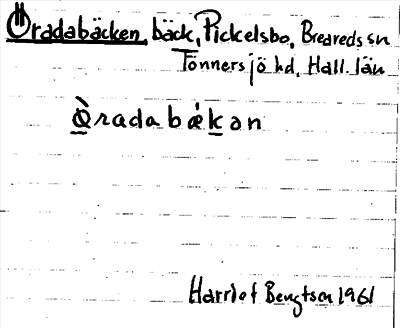 Öradabäcken, bäck, Pickelsbo, Breareds sn
Tönnersjö hd, Hall. län
Q̀radabǽkən
Harriet Bengtson 1961